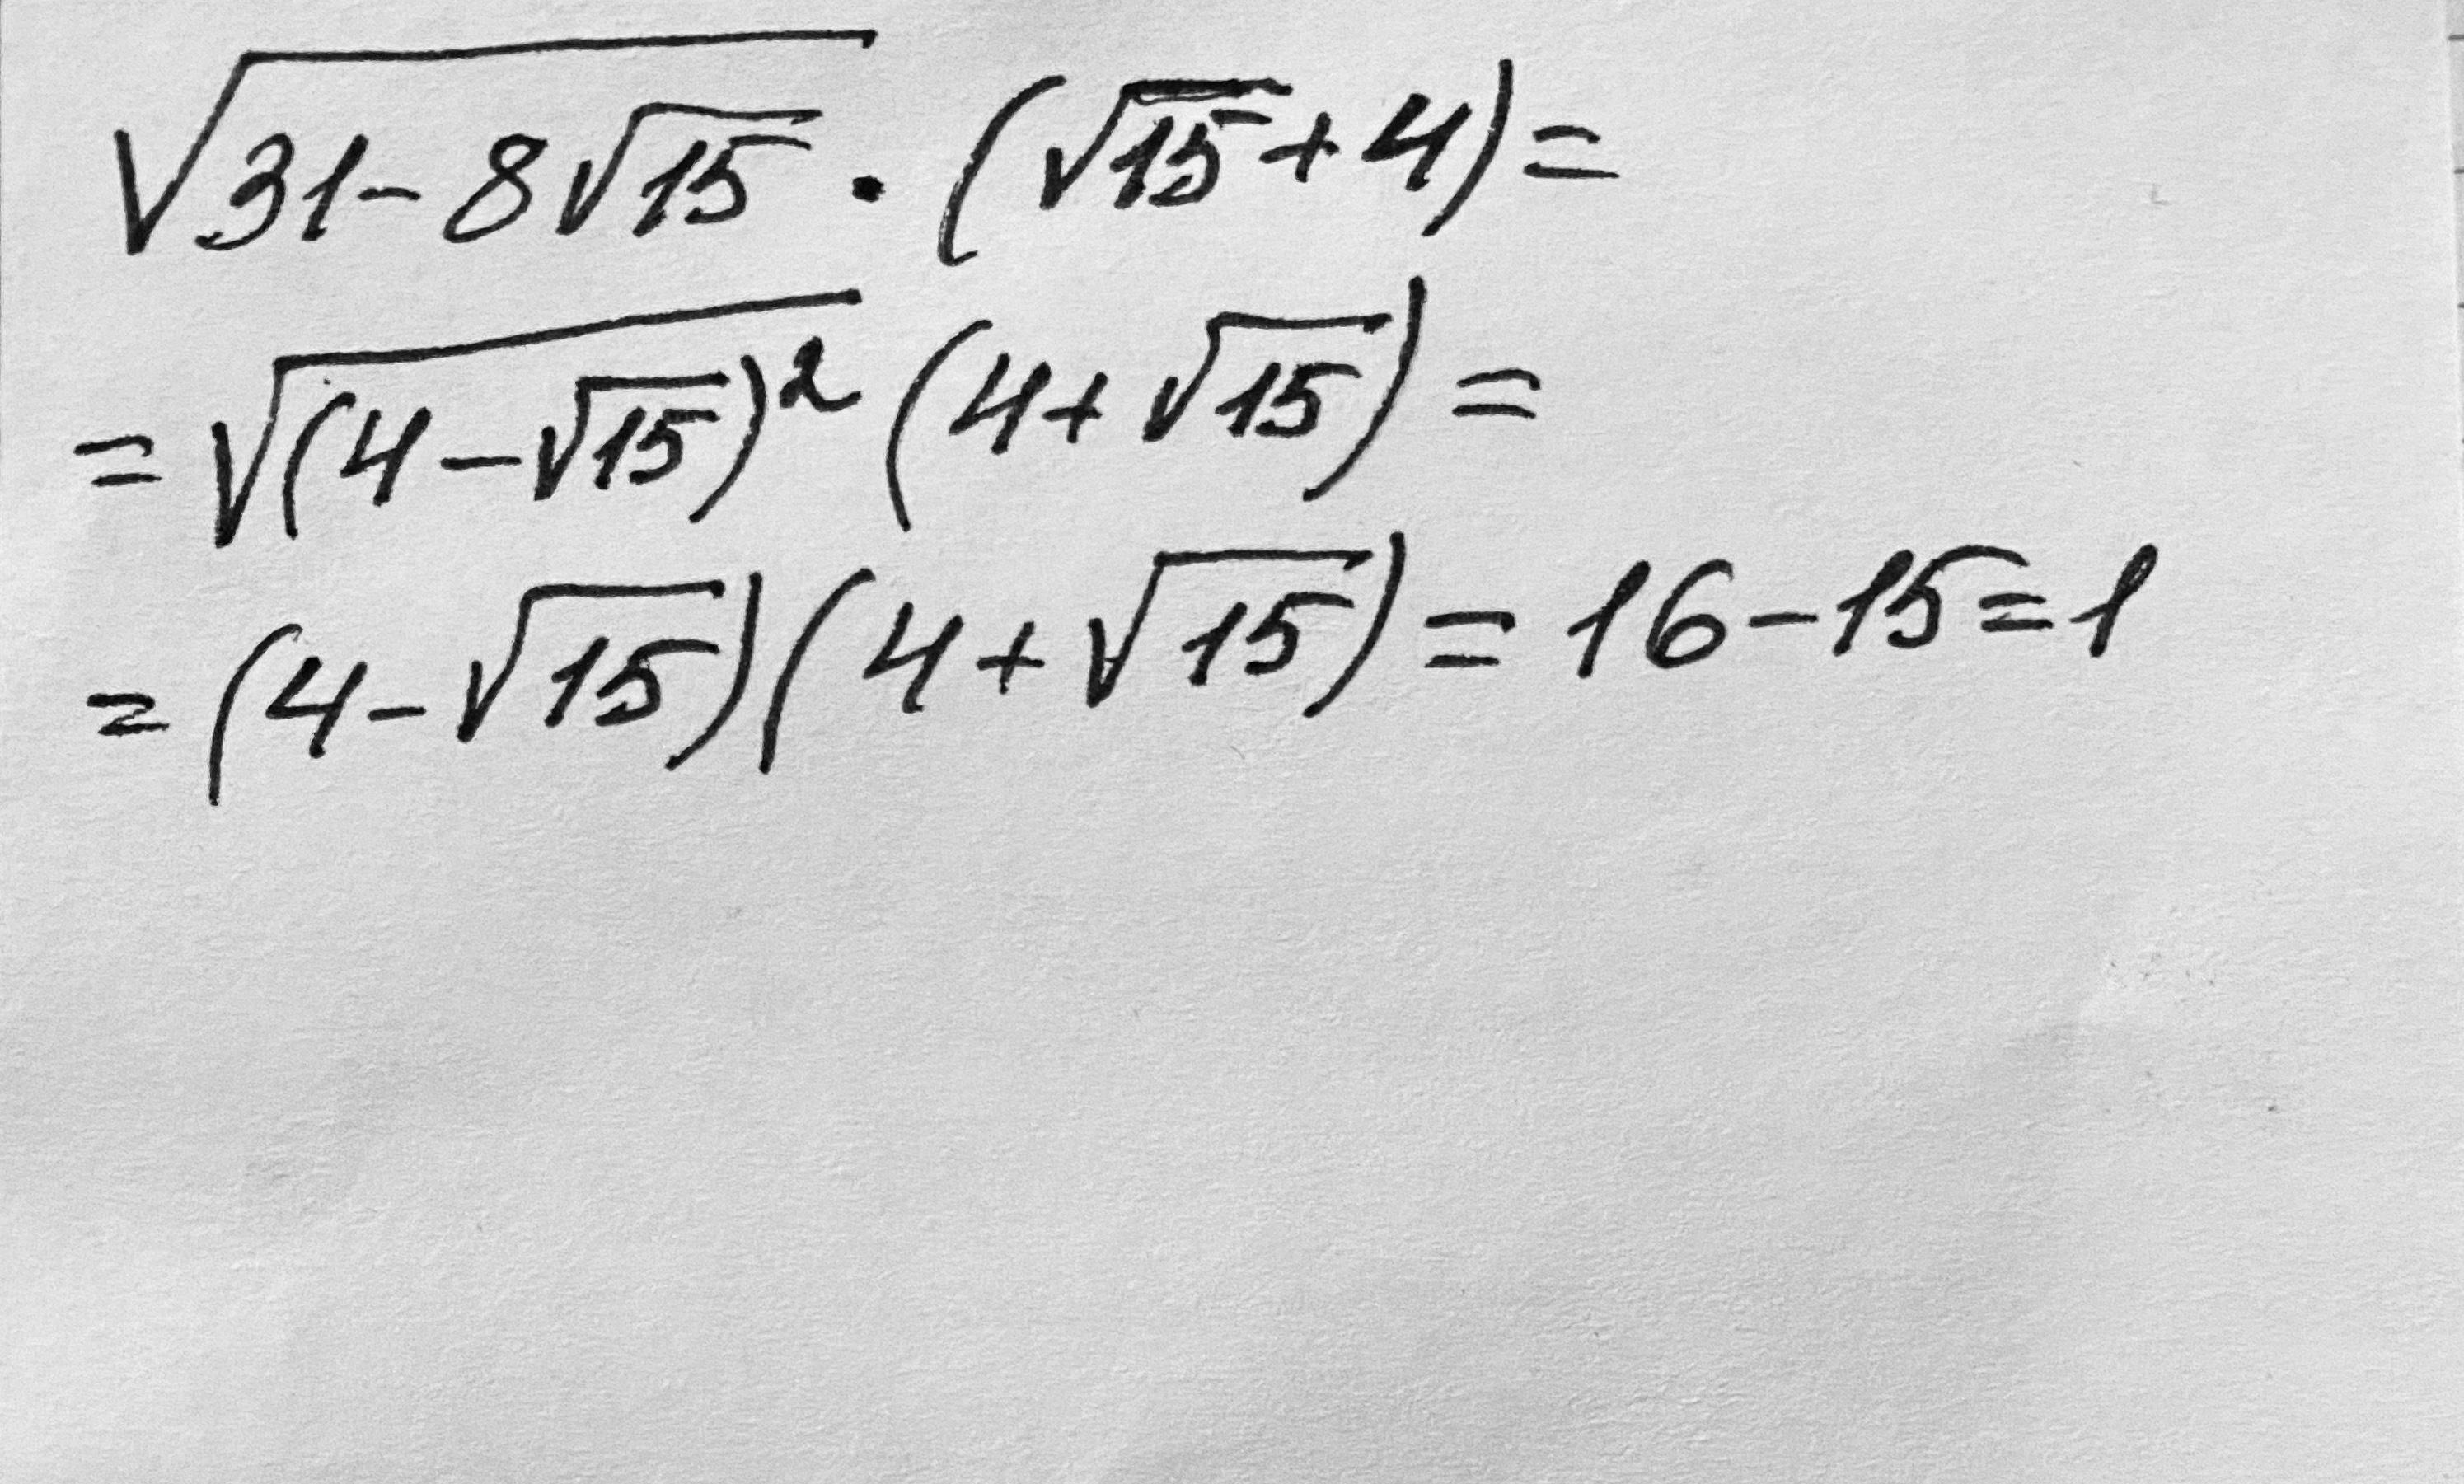 √(31-8√15) · (√15+4)=
=√((4-√15)²) (4+√15)=
=(4-√15)(4+√15)=16-15=1